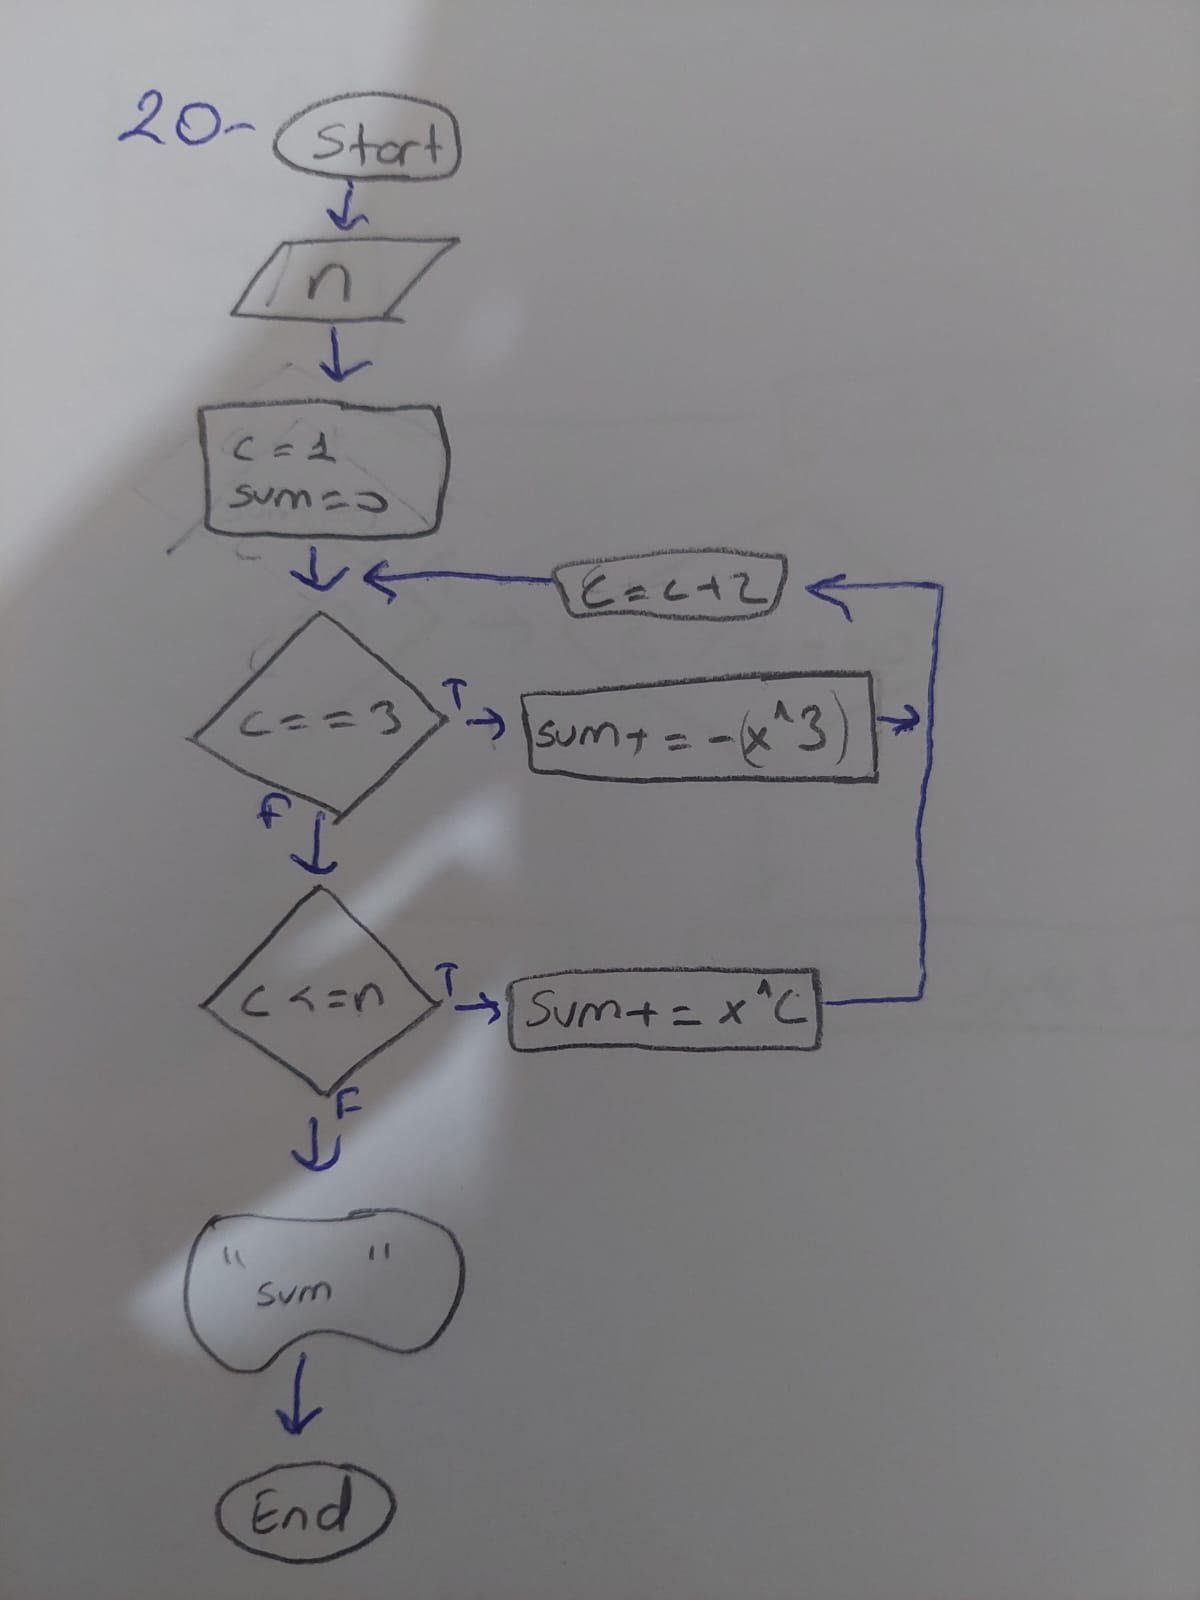 20- Start
n
c = 1
sum = 0
c = c + 2
c == 3
T
sum + = -(x^3)
F
c <= n
T
Sum + = x^c
F
" sum "
End